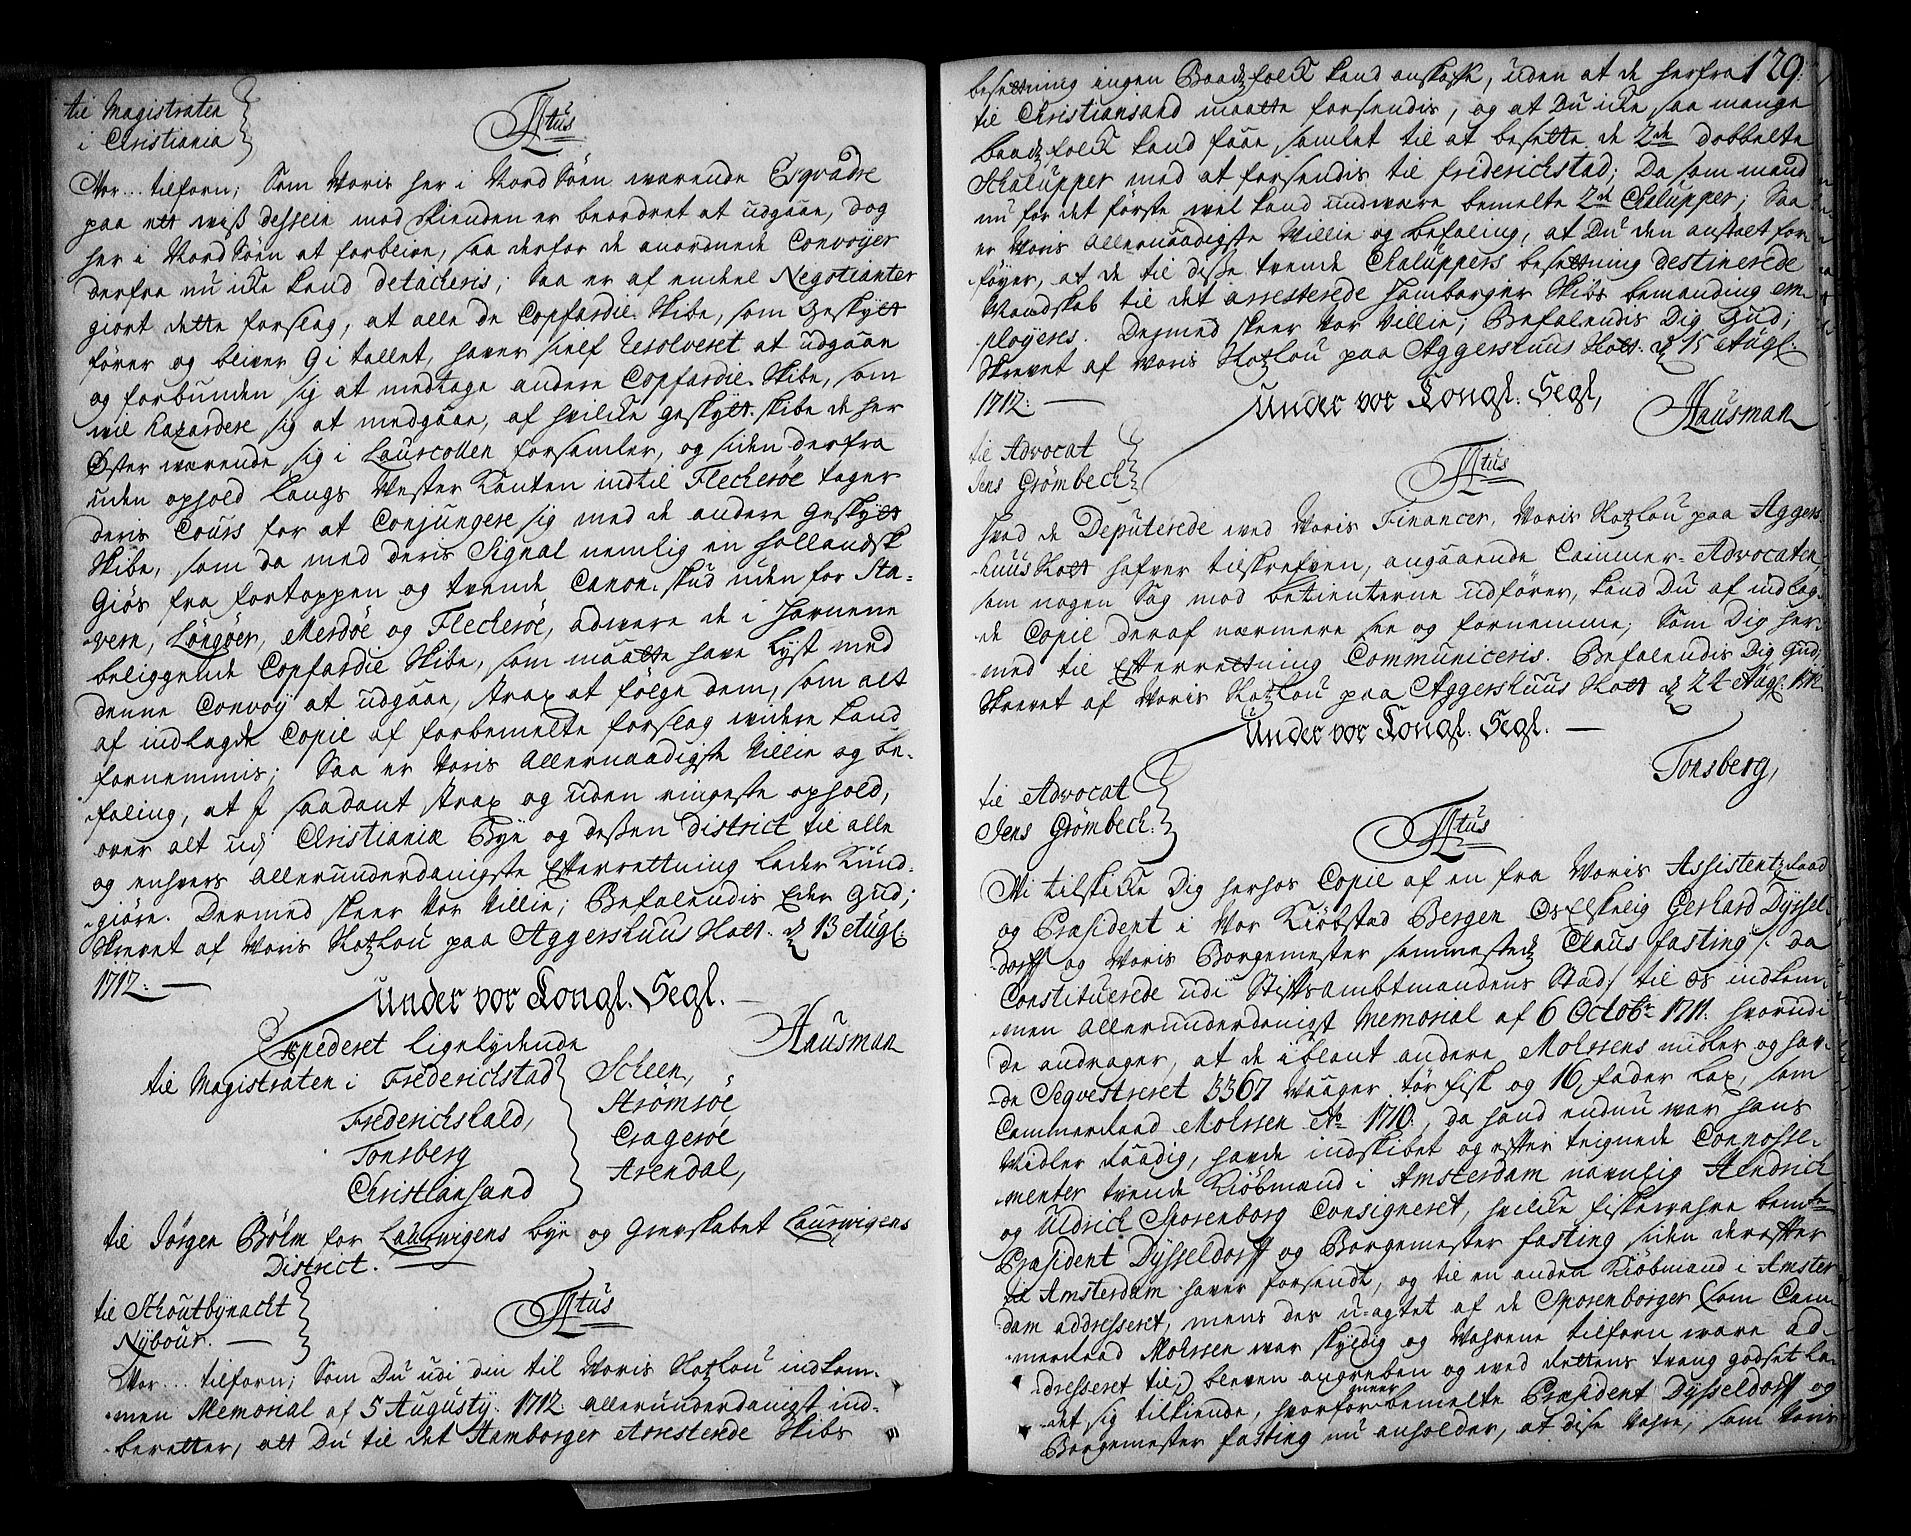 til Magistraten
i Christiania
Ttus
Vor... tilforn; Som Voris her i Nord Søen værende Esqvadre
paa ett wiß dessein mod fienden er beordret at udgaae, dog
her i Nord Søen at forblive, saa derfor de anordnede Convoyer
derfra nu icke kand detacheris; saa er af endeel Negotianter
giort dette forslag, at alle de Copfardie Skibe, som Geskytt
fører og bliver 9 i tallet, haver self resolveret at udgaae
og forbunden sig at medtage andre Copfardie Skibe, som
wil hazardere sig at medgaae, af hvilcke geskytt skibe de her
Øster værende sig i Laurcollen forsamler, og siden derfra
uden ophold langs Vester Kanten indtil Flecherøe tager
deris Cours for at Conjungere sig med de andre Geskytt
Skibe, som da med deris Signal nemlig en hollandsk
Giøs fra fortoppen og tvende Canon skud uden for Sta-
vern, Longøer, Merdøe og Flecherøe, advare de i Havnene
beliggende Copfardie Skibe, som maatte have Lyst med
denne Convoy at udgaae, strax at følge dem, som alt
af indlagde Copie af forbemelte forslag widere kand
fornemmis; Saa er Voris Allernaadigste Villie og be-
faling, at I saadant strax og uden ringeste ophold,
over alt udj Christianiæ Bye og deßen district til alle
og enhvers allerunderdanigste Efterrettning lader Kund-
giøre. Dermed skeer Vor Villie; Befalendis Eder Gud;
Skrevet af Voris Slotzlou paa Aggershuus Slott. d 13 Augl:
1712:
Under vor Kongl. Segl.
Hausman
Expederet ligelydende
til Magistraten i Friderichstad Scheen,
Friderichshald, Strømsøe
Tonsberg Cragerøe
Christiansand Arendal,
til Jørgen Bølm for Laurwigens bye og Grevskabet Laurwigens
District.
til Schoutbynacht
Nybour.
Ttus
Vor... tilforn; Som Du udi din til Voris Slotzlou indkom-
men Memorial af 5 Augusty 1712 allerunderdanigst ind-
beretter, att Du til det Hamborger Arresterede Skibs
129.
besettning ingen Baadzfolck kand anskafse, uden at de herfra
til Christiansand maatte forsendis, og at Du icke saa mange
baadzfolck kand faae samlet til at besette de 2de dobbelte
Schalupper med at forsendis til Friderichstad; Da som mand
nu for det første wel kand undwære bemelte 2de Chalupper; Saa
er Voris Allernaadigste Villie og befaling, at Du den anstalt for-
føyer, at de til disse tvende Chaluppers besettning destinerede
Mandskab til det arresterede Hamborger Skibs bemanding em-
ployeres. Dermed skeer Vor Villie; Befalendis Dig Gud;
Skrevet af Voris Slotzlou paa Aggershuus Slott. d 15 Augl:
1712:
Under vor Kongl. Segl,
Hausman
til Advocat
Jens Grømbech
Ttus
Hvad de Deputerede ved Voris Financer, Voris Slotzlou paa Aggers-
huus Slott hafver tilskrefven, angaaende Cammer-Advocaten,
som nogen Sag mod betienterne udfører, kand Du af indlag-
de Copie deraf nærmere see og fornemme; Som Dig her-
med til Efterrettning Communiceris. Befalendis Dig Gud,
Skrevet af Voris Slotzlou paa Aggershuus Slott d 22 Augl: 1712
Under vor Kongl. Segl.
Tonsberg,
til Advocat
Jens Grømbech.
Ttus
Vi tilskicke Dig herhos Copie af en fra Voris Assistentzraad
og Præsident i Vor Kiøbstad Bergen Os Elskelig Gerhard Dyssel-
dorff og Voris Borgemester sammestedz Claus Fasting /: da
Constituerede udi Stiftsambtmandens Stad/ til os indkom-
men allerunderdanigst Memorial af 6 Octobr: 1711. hvorudi
de andrager, at de iblant andre Mohssens midler og hav-
de Seqvestreret 3367 Waager tør fisk og 16 fader Lax, som
Cammerraad Mohssen Ao 1710, da hand endnu war hans
Midler raadig, havde indskibet og efter teignede Connosse-
menter tvende Kiøbmænd i Amsterdam navnlig Hendrich
og Uldrich Sporenborg Consigneret, hvilcke fiskewahre bemte
Præsident Dysseldorff og Borgemester Fasting siden derefter
til Amsterdam haver forsendt, og til en anden Kiøbmand i Amster-
dam addresseret, mens des u-agtet af de Sporenborger (som Cam-
merraad Mohssen war skyldig og Wahrene tilforn ware ad-
dresseret til) bleven angreben og ved Rettens trang godset la-
det sig tilkiende, hvorfor bemelte Præsident Dysseldorff og
Borgemester Fasting nu anholder, at dise Vahre, som Voris